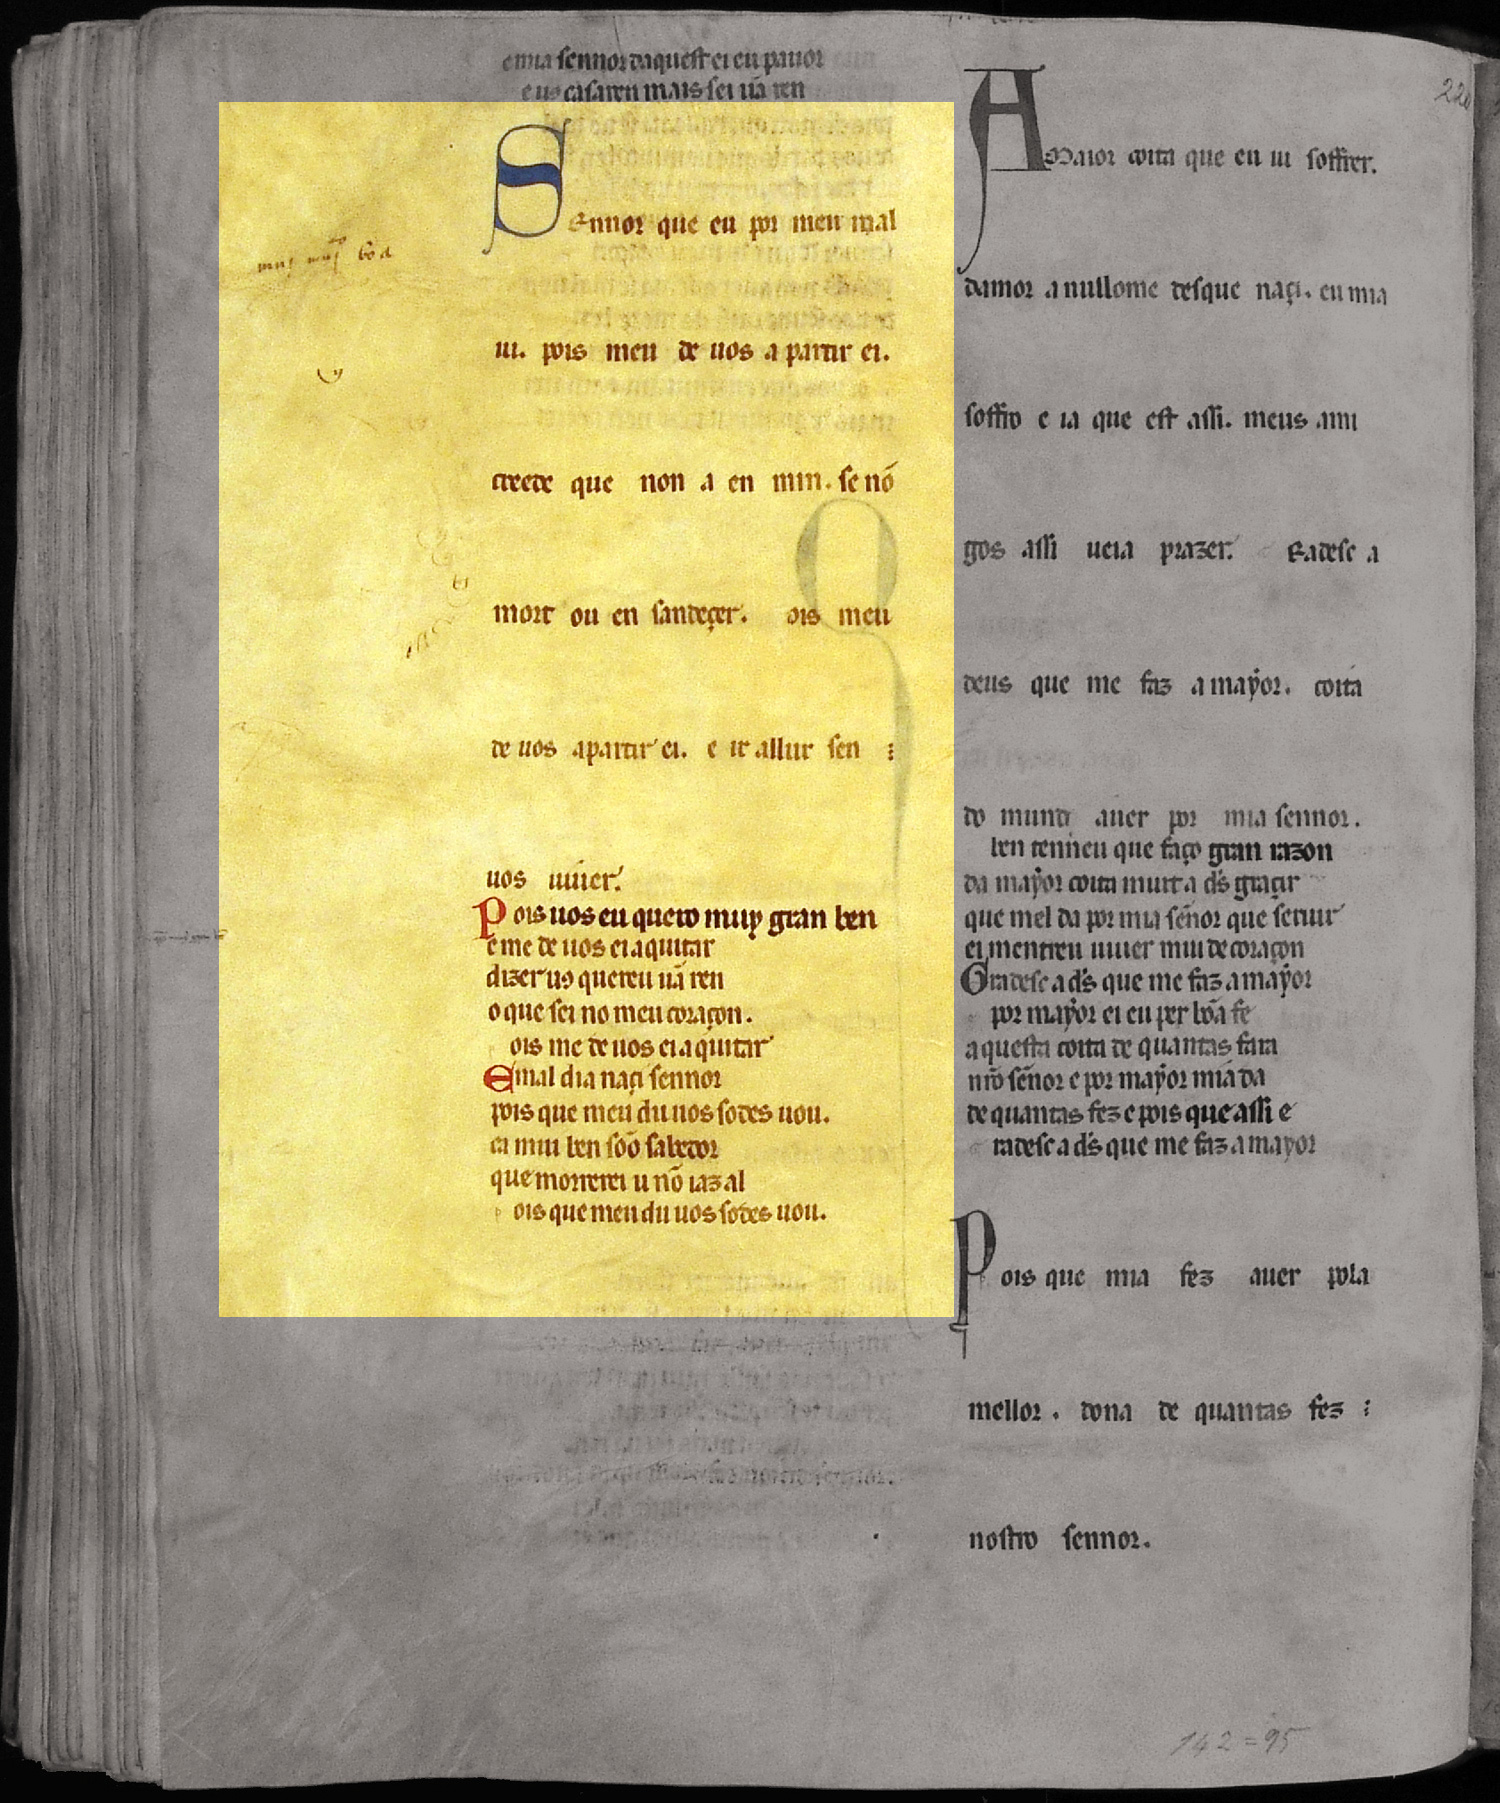 emia sennor daquest ei eu pauor
e uus casaren mais sei ũa ren
Sennor que eu por meu mal
ui. pois meu de uos a partir ei.
creede que non a en min. se nõ
mort ou en sandeçer. ois meu
de uos apartir ei. e ir allur sen :
uos uiuer.
Pois uos eu quero muy gran ben
e me de uos ei aquitar
dizer uꝯ quereu ũa ren
o que sei no meu coraçon.
ois me de uos ei a quitar
E mal dia naçi sennor
pois que meu du uos sodes uou.
ca miu ben sõo sabedor
que morrerei u nõ iaz al
ois que meu du uos sodes uou.
muj muj boa
A Maior coita que eu ui soffrer.
damor a nullome desque naçi. eu mia
soffro e ia que est assi. meus ami
gos assi ueia prazer. Gradesc a
deus que me faz a maẏor. coita
do mund auer por mia sennor.
ben tenneu que faço gran razon
da maẏor coita muit a ds̃ graçir
que mel da por mia señor que seruir
ei mentreu uiuer mui de coraçon
Gradesc a ds̃ que me faz a maẏor
por maẏor ei eu per bõa fe
aquesta coita de quantas fara
nr̃o señor e por maẏor mia da
de quantas fez e pois que assi e
radesc a ds̃ que me faz a mayor
Pois que mia fez auer pola
mellor. dona de quantas fez :
nostro sennor.
142=95